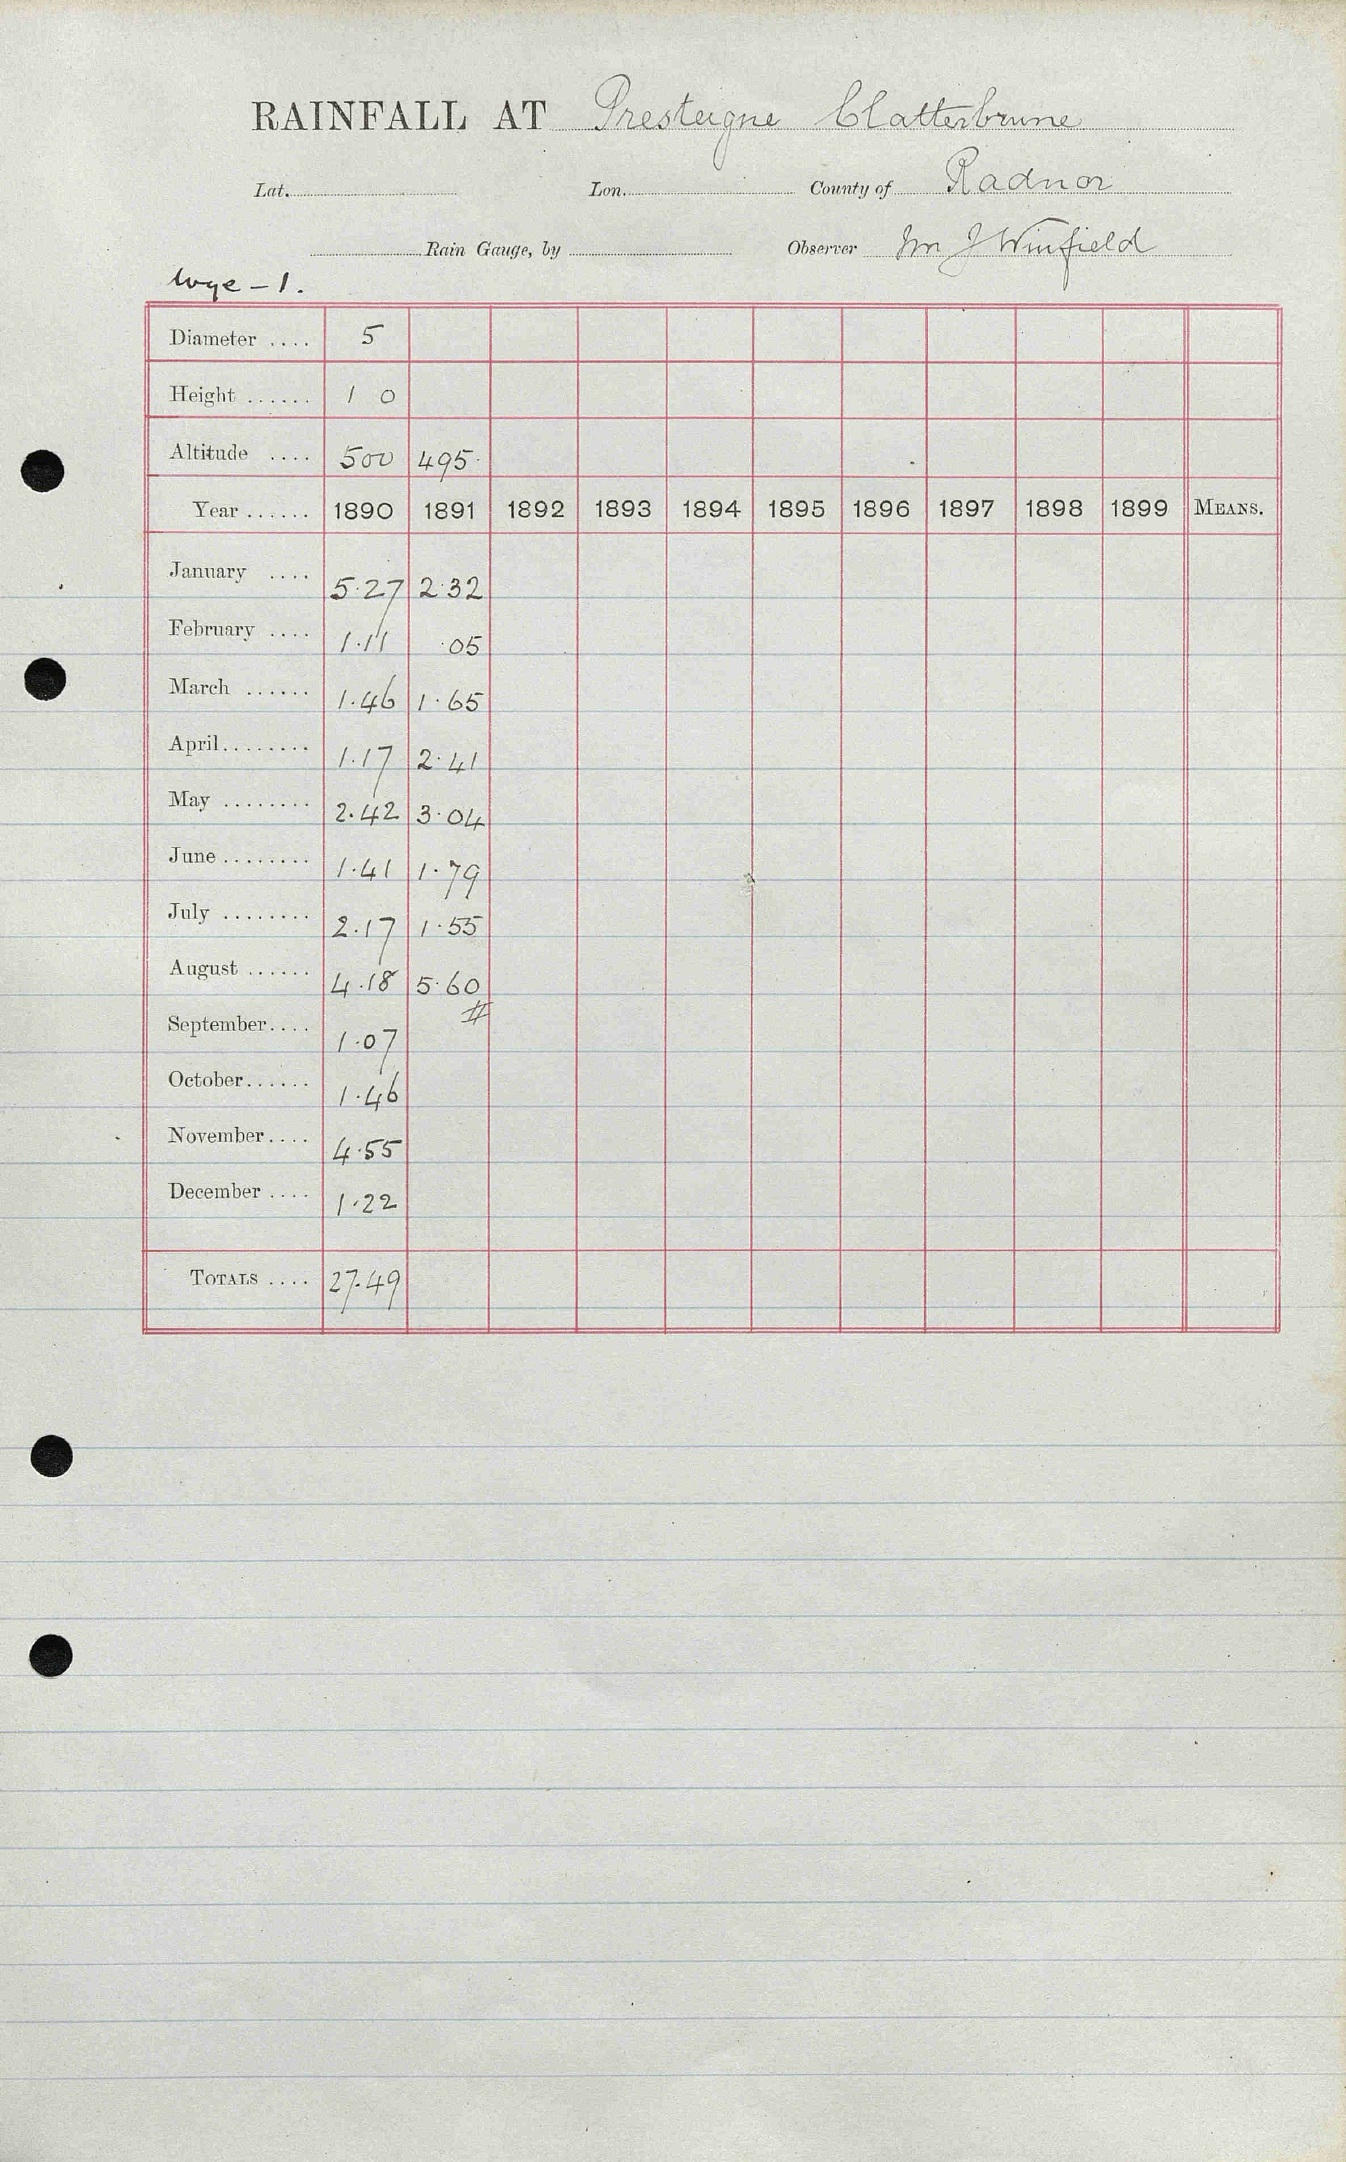 RAINFALL AT Presteigne Clatterbrune
Lat. Lon. County of Radnor
Rain Gauge, by Observer J Winfield
Wye - 1.
Diameter .... 5
Height ...... 1 0
Altitude .... 500 495
Year ...... 1890 1891 1892 1893 1894 1895 1896 1897 1898 1899 MEANS.
January .... 5.27 2.32
February .... 1.11 .05
March ...... 1.46 1.65
April........ 1.17 2.41
May ........ 2.42 3.04
June ........ 1.41 1.79
July ........ 2.17 1.55
August ...... 4.18 5.60
#
September.... 1.07
October...... 1.46
November.... 4.55
December .... 1.22
TOTALS .... 27.49